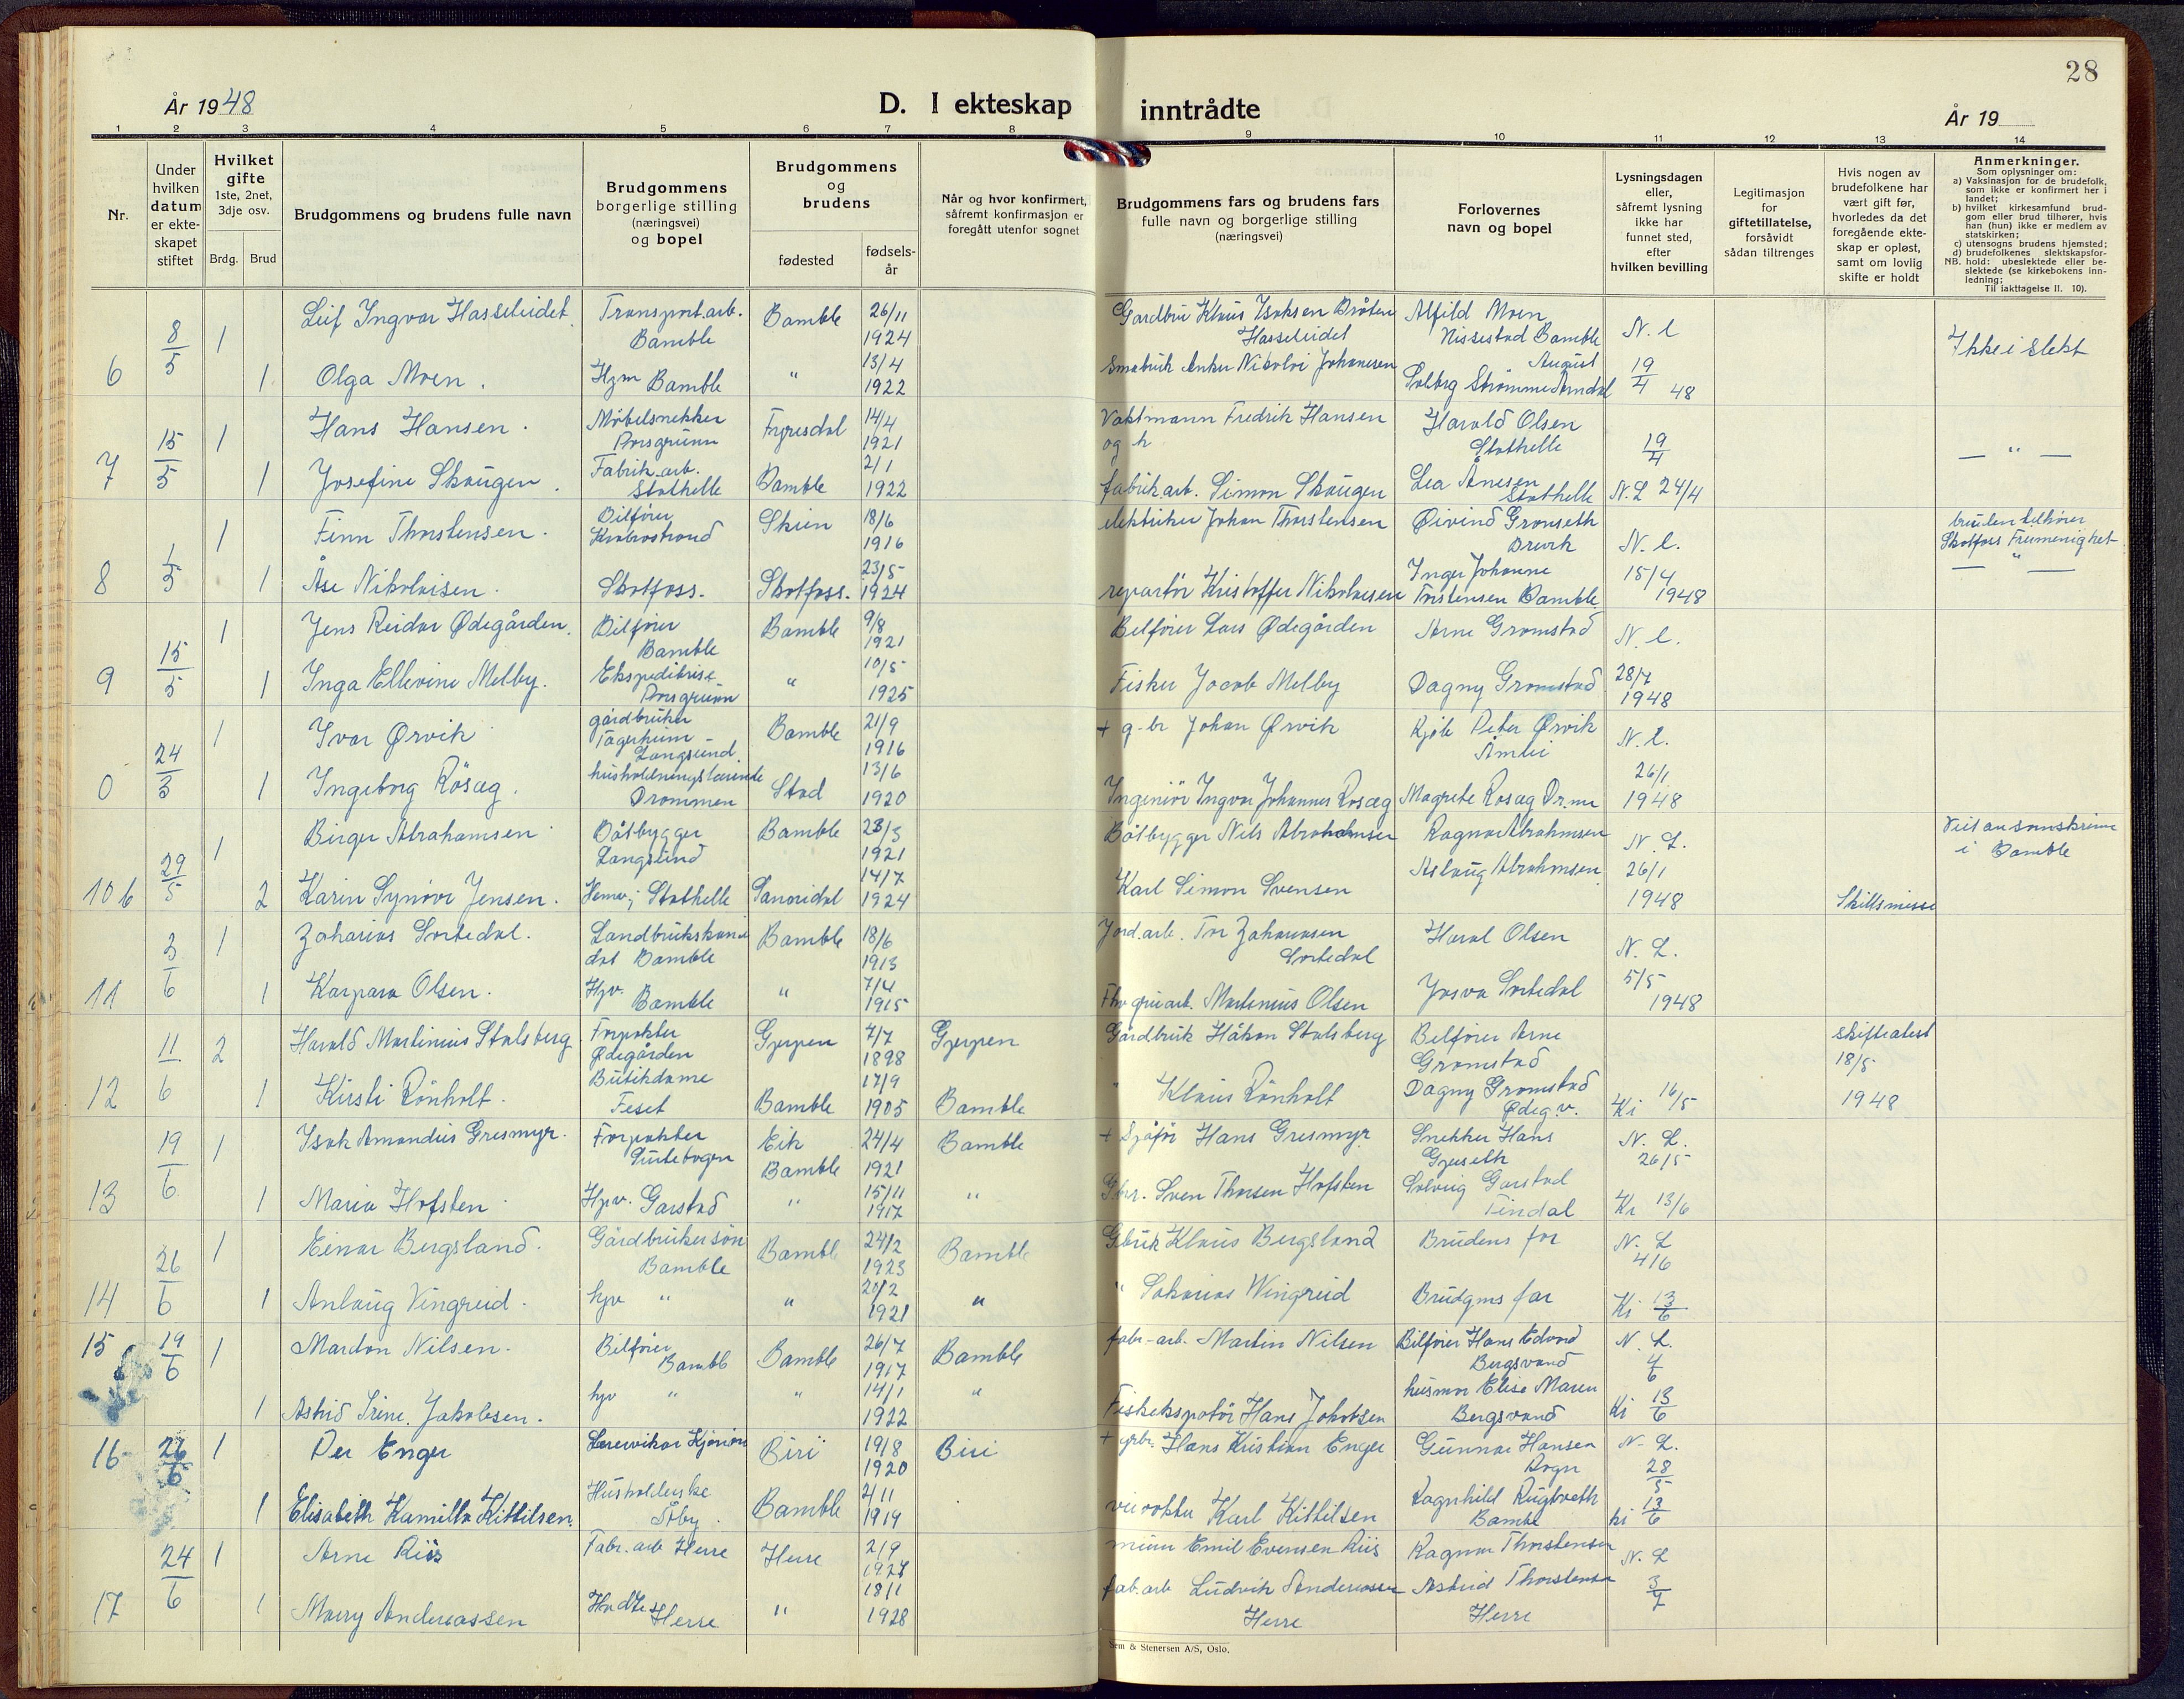 28
År 1948
D. I ekteskap inntrådte
År 19
1 2 3 4 5 6 7 8 9 10 11 12 13 14
Nr.
Under hvilken datum er ekte-skapet stiftet
Hvilket gifte 1ste, 2net, 3dje osv.
Brdg. Brud
Brudgommens og brudens fulle navn
Brudgommens borgerlige stilling (næringsvei) og bopel
Brudgommens og brudens
fødested
fødsels-år
Når og hvor konfirmert, såfremt konfirmasjon er foregått utenfor sognet
Brudgommens fars og brudens fars fulle navn og borgerlige stilling (næringsvei)
Forlovernes navn og bopel
Lysningsdagen eller, såfremt lysning ikke har funnet sted, efter hvilken bevilling
Legitimasjon for giftetillatelse, forsåvidt sådan tiltrenges
Hvis nogen av brudefolkene har vært gift før, hvorledes da det foregående ekte-skap er opløst, samt om lovlig skifte er holdt
Anmerkninger.
Som oplysninger om:
a) Vaksinasjon for de brudefolk, som ikke er konfirmert her i landet;
b) hvilket kirkesamfund brud-gom eller brud tilhører, hvis han (hun) ikke er medlem av statskirken;
c) utensogns brudens hjemsted;
d) brudefolkenes slektskapsfor-hold: ubeslektede eller be-slektede (se kirkebokens inn-ledning;
NB. Til iakttagelse II. 10).
6 8/5 1 Leif Ingvar Hasseleidet Transport.arb. Bamble Bamble 26/11 1924 Gardbru Klaus Isaksen Bråten Hasseleidet Alfild Moen Nissestad Bamble N. l
1 Olga Moen. Hjm Bamble " 13/4 1922 Småbruk Anker Nikolai Johannesen August Solberg Strømme Arndal 19/4 48 Ikke i slekt
7 15/5 1 Hans Hansen. Møbelsnekker Porsgrunn Fyresdal 14/4 1921 Vaktmann Fredrik Hansen og h Harald Olsen Stathelle 19/4
1 Josefine Skaugen. Fabrik.arb. Stathelle Bamble 2/1 1922 fabrik.arb. Simon Skaugen Lea Ånesen Stathelle N.L 24/4 — " —
8 1/5 1 Finn Thorstensen. Bilfører Skien 18/6 1916 elektriker Johan Thorstensen Øivind Gronseth Brevik N. l.
1 Åse Nikolaisen. Skotfoss. Skotfoss. 23/5 1924 reparatør Kristoffer Nikolaisen Inger Johanne Torstensen Bamble 15/4 1948 bruden tilhører Skotfoss Frimenighet — " —
9 15/5 1 Jens Reidar Ødegården. Bilfører Bamble Bamble 9/8 1921 Bilfører Lars Ødegården Arne Gromstad N. l.
1 Inga Ellevine Melby. Ekspeditrise Porsgrunn " 10/5 1925 Fisker Jacob Melby Dagny Gromstad 28/7 1948
0 24/3 1 Ivar Ørvik gårdbruker Langesund Bamble 21/9 1916 + g-br Johan Ørvik Peter Ørvik Åmli N. l.
1 Ingeborg Rösæg. husholdningslærerinde Drammen Stad 13/6 1920 Ingeniør Ingvar Johannes Rosæg Magrete Rosæg Dr.mn 26/1 1948
10 b 29/5 1 Birger Abrahamsen Båtbygger Langesund Bamble 28/3 1921 Båtbygger Nils Abrahamsen Ragnar Abrahmsen N. L.
2 Karin Synøve Jensen. Hemv; Stathelle Sanoridal 14/7 1924 Karl Simon Svensen Aslaug Abrahmsen 26/1 1948 Skillsmisse Viet av sorenskriver i Bamble
11 3/6 1 Zaharias Sortedal. Landbrukskandidat Bamble Bamble 18/6 1913 Jord.arb. Tor Zahariasen Sortedal Haral Olsen N. L.
1 Karpara Olsen. Hjv. Bamble " 7/4 1915 gruearb. Martenius Olsen Josva Sortedal 5/5 1948
12 11/6 2 Harald Martinius Stalsberg Forpakter Ødegården Gjerpen 7/7 1898 Gjerpen Gårdbruk Håkon Stalsberg Bilfører Arne Gromstad skifteatest 18/5 1948
1 Kirsti Rönholt. Butikdame Feset Bamble 17/9 1905 Bamble " Klaus Rönholt Dagny Gromstad Ødeg.v. Ki 16/5
13 19/6 1 Isak Amandus Gresmyr. Forpakter Surtebogen Eik Bamble 24/4 1921 Bamble + Sjåfør Hans Gresmyr Snekker Hans Gjerseth N. L. 26/5
1 Maria Hofsten Hjv. Garstad " 15/11 1917 " Gbr. Sven Thorsen Hofsten Solveig Garstad Findal Ki 13/6
14 26/6 1 Einar Bergsland. Gårdbrukersøn Bamble Bamble 24/2 1923 Bamble Gbruk Klaus Bergsland Brudens far N. L 4/6
1 Anlaug Vingreid. hjv " " 20/2 1921 " " Sakarias Wingreid Brudgms far Ki 13/6
15 19/6 1 Mardon Nilsen. Bilfører Bambl Bamble 26/7 1917 Bamble fabr-arb. Martin Nilsen Bilfører Hans Edvard Bergsvand N. L. 4/6
1 Astrid Irine. Jakobsen. hjv " " 14/1 1922 " Fiskeksportør Hans Jakobsen husmor Elise Maren Bergsvand Ki 13/6
16 26/6 1 Per Enger Lærervikar Biri 19/8 1920 Biri + grbr. Hans Kristian Enger Gunnar Hansen N- L. 28/5
1 Elisabeth Kamilla Kittilsen. Husholderske Åby. Bamble 2/11 1919 veivokter Karl Kittilsen Ragnhild Rugtveth Bamble ki 13/6
17 24/6 1 Arne Riis Fabr. arb Herre Herre 2/9 1927 murer Emil Evensen Riis Ragnar Thorstensen N. L
1 Marry Andreassen Herre " 18/1 1928 fab. arb Ludvik Andreassen Herre Astrid Thorstensen Herre 3/7
Sem & Stenersen A/S, Oslo.